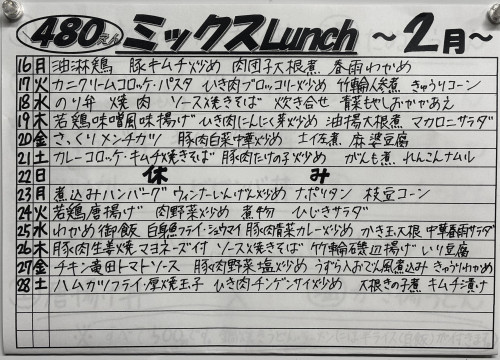 480えん ミックスLunch 〜2月〜
16月 油淋鶏 豚キムチ炒め 肉団子大根煮 春雨わかめ
17火 カニクリームコロッケ・パスタ ひき肉ブロッコリー炒め 竹輪人参煮 きゅうりコーン
18水 のり弁 焼肉 ソース焼きそば 炊き合せ 青菜もやしおかかあえ
19木 若鶏味噌風味揚げ ひき肉にんにく芽炒め 油揚大根煮 マカロニサラダ
20金 さっくりメンチカツ 豚肉白菜中華炒め 土佐煮 麻婆豆腐
21土 カレーコロッケ・キムチ焼きそば 豚肉たけの子炒め がんも煮 れんこんナムル
22日 休み
23月 煮込みハンバーグ ウィンナーいんげん炒め ナポリタン 枝豆コーン
24火 若鶏唐揚げ 肉野菜炒め 煮物 ひじきサラダ
25水 わかめ御飯 白身魚フライ・シュウマイ 豚肉青菜カレー炒め かき玉大根 中華春雨サラダ
26木 豚肉生姜焼マヨネーズ付 ソース焼きそば 竹輪磯辺揚げ いり豆腐
27金 チキン竜田トマトソース 豚肉野菜塩炒め うずら入おでん風煮込み きゅうりわかめ
28土 ハムカツフライ・厚焼玉子 ひき肉チンゲンサイ炒め 大根きの子煮 キムチ漬け